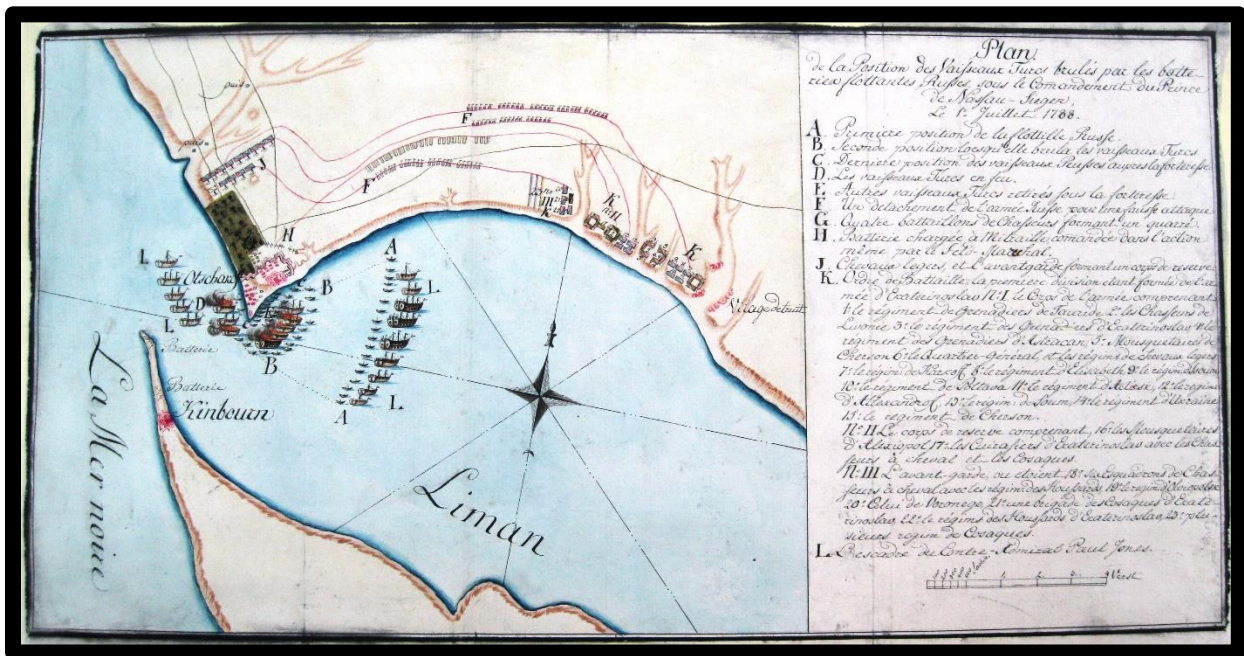 Plan
de la Position des Vaisseaux Turcs brulés par les batte-
ries flottantes Russes sous le Comandement du Prince
de Nassau-Siegen,
Le 1r. Juillet 1788.
A. Premiere position de la flottille Russe
B. Seconde position lorsqu'elle brula les vaisseaux Turcs.
C. Derniere position des vaisseaux Russes aupres la forteresse
D. Les vaisseaux Turcs en feu.
E. Autres vaisseaux Turcs retirés sous la forteresse
F. Un detachement de l'armée Russe pour une fausse attaque
G. Quatre battaillons de Chasseurs formant un quarré
H. Batterie chargée à Mitraille comandée dans l'action
même par le Feld-Marèchal.
J. Chevaux legers, et l'avantgarde formant un corps de reserve
K. Ordre de Bataille, la premiere division etant formée de l'ar-
mée d'Ecaterinoslaw No I. le Gros de l'armée comprenant
1. le regiment de Grenadiers de Tauride 2. les Chasseurs de
Livonie, 3. le regiment des Grenadiers d'Ecaterinoslaw 4. le
regiment des Grenadiers d'Astracan, 5. Mousquetaires de
Cherson 6. le Quartier-general, et les regims de chevaux legers
7. le regim de 8. le regiment d' 9. le regim
10. le regiment de Poltava 11. le regiment d' 12. le regim
d' 13. le regim. de Soum, 14. le regiment d'Ukraine
15. le regiment de Cherson.
No II. Le corps de reserve comprenant, 16. les Mousquetaires
d'Alexopol, 17. les Cuirassiers d'Ecaterinoslaw avec les Chas-
seurs à cheval et les Cosaques.
No III. L'avant-garde, ou etoient 18. six Esquadrons de Chas-
seurs à cheval avec les regim des Housards 19. le regim
20. Celui de Woronege, 21. une brigade des Cosaques d'Ecate-
rinoslaw, 22. le regims des Housards d'Ecaterinoslaw, 23. plu-
sieurs regim de Cosaques.
L. L'escadre du Contre-Admiral Paul Jones.
Verst
puis
puis
J
F
F
H
III
K
K
No II
K
Village detruit
Otschakof
L
D
L
B
B
A
L
L
A
Batterie
Batterie
Kinbourn
La Mer noire
Liman